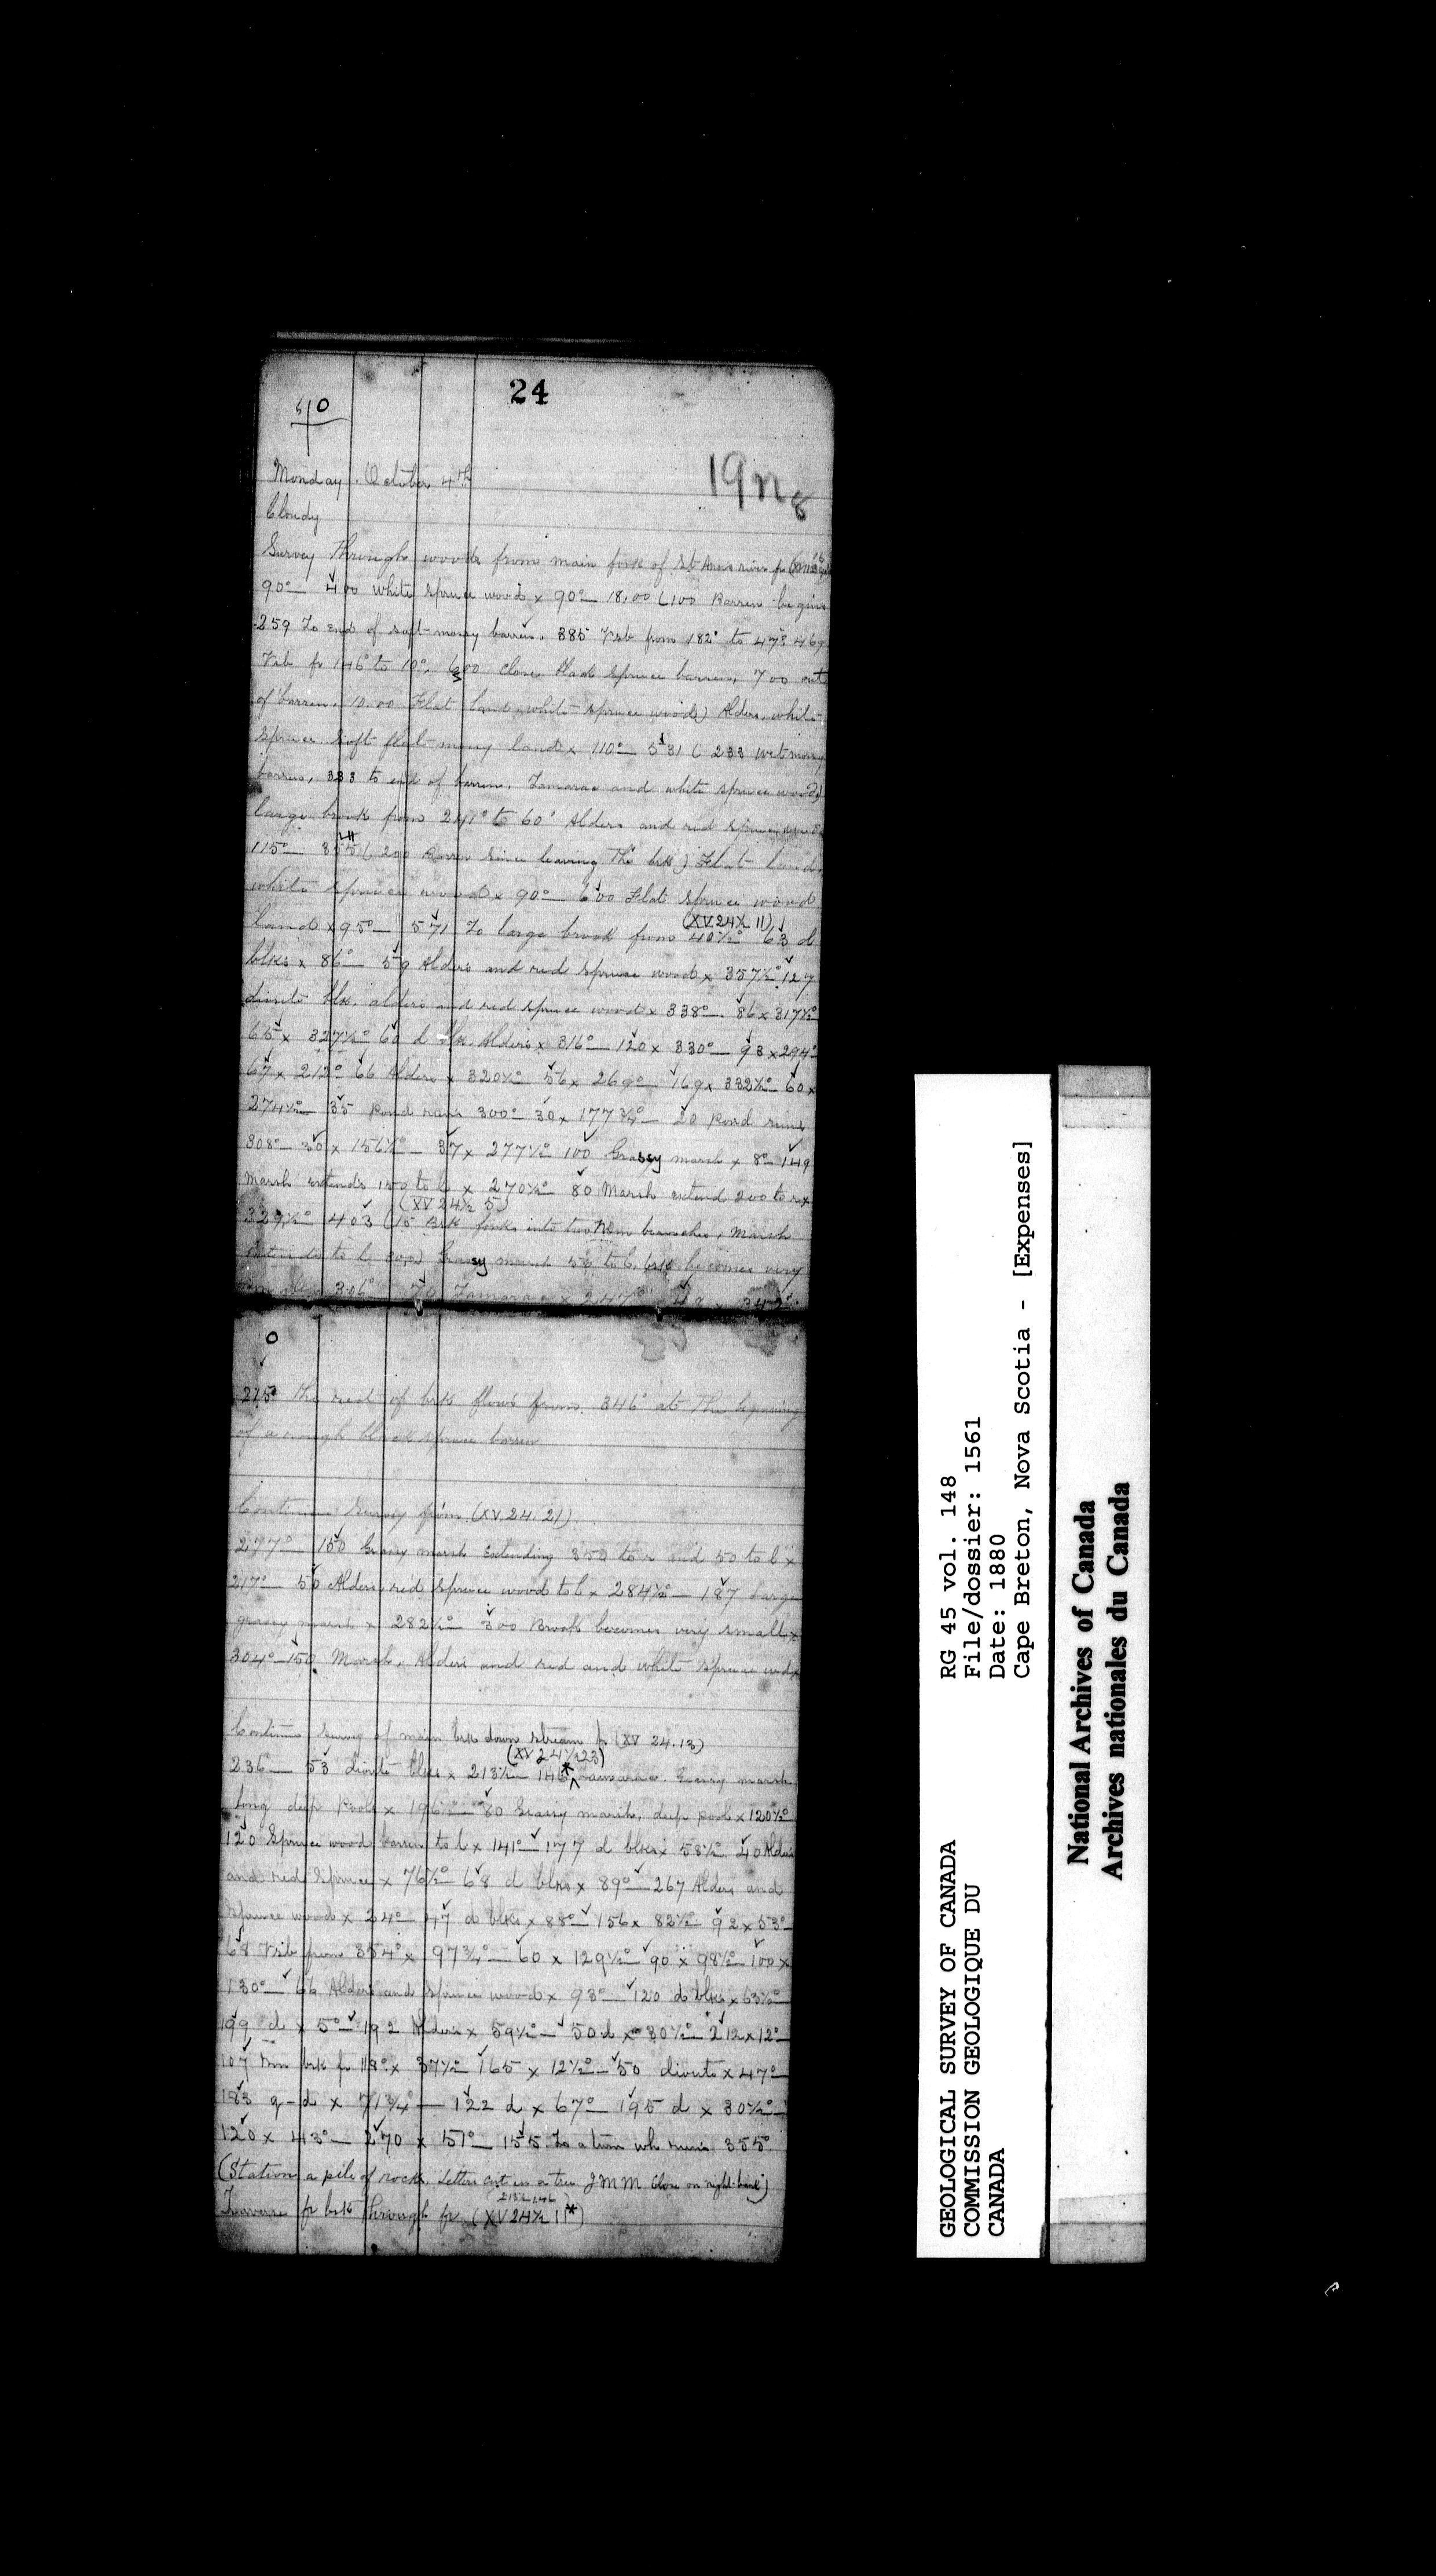 24
40
19 n 8
Monday October 4th
Cloudy
Survey through woods from main fork of St Anns river fr
90° 400 white spruce wood x 90° 18,00 (100 Barren begins
259 To end of soft mossy barren. 385 Trib from 182° to 47° 469
Trib fr 146° to 10°. 600 close black spruce barren, 700 out
of barren. 10.00 Flat land, white spruce wood) Alders, white
spruce soft flat mossy land x 110° 531 (233 wet mossy
barren, 333 to end of barren. Tamarac and white spruce wood)
large brook from 241° to 60° Alders and red spruce
115° (200 since leaving the brk) Flat land,
white spruce wood x 90° 600 Flat spruce wood
(XV 24½ 11)
land x 95° 571 To large brook from 40½° 63 d
blks x 86° 59 Alders and red spruce wood x 357½° 127
diorite blks. alders and red spruce wood x 338° 86 x 317½°
65 x 327½° 60 d blk. Alders x 316° 120 x 330° 93 x 294°
67 x 212° 66 Alders x 320½° 56 x 269° 169 x 332½° 60 x
274½° 35 Pond runs 300° 30 x 177¾° 20 Pond runs
308° 30 x 156½° 37 x 277½° 100 Grassy marsh x 8° 149
Marsh extends 150 to l x 270½° 80 Marsh extend 200 to r x
(XV 24½ 5)
329½° 403 (15 Brk forks into two branches, marsh
extends to l 300) Grassy marsh 53 to l. brk becomes very
316° 70 Tamarac x 247° 342°
0
275° the rest of brk flows from 346° at the beginning
of a rough black spruce barren
Continue Survey from (XV 24. 21)
277° 150 Grassy marsh extending 350 to r and 50 to l x
217° 55 Alders red spruce wood to l x 284½° 187 Large
grassy marsh x 282½° 300 Brook becomes very small x
304° 150 Marsh. Alders and red and white spruce wd x
Continue Survey of main brk down stream fr (XV 24. 13)
(XV 24½ 23)
236 53 diorite blks x 213½ 146 * Tamarac. Grassy marsh,
long deep pools x 196° 80 Grassy marsh, deep pool x 120½°
120 Spruce wood barren to l x 141° 177 d blks x 58½ 40 Alders
and red spruce x 76½° 68 d blks x 89° 267 Alders and
spruce wood x 24° 47 d blks x 88° 156 x 82½° 92 x 53°
68 Trib from 354° x 97¾° 60 x 129½° 90 x 98½° 100 x
130° 66 Alders and spruce wood x 93° 120 d blks x 63½°
199 d x 5° 192 Alders x 59½° 50 d x 30½° 212 x 12°
107 brk fr 118° x 37½ 165 x 12½° 50 diorite x 47°
183 g-d x 71¾ 122 d x 67° 195 d x 30½°
120 x 43° 270 x 51° 155 To a turn wh runs 355°
(Station a pile of rocks. Letters cut in a tree J M M close on right bank)
Traverse fr brk through fr (XV 24½ 11*)
GEOLOGICAL SURVEY OF CANADA
COMMISSION GEOLOGIQUE DU
CANADA
RG 45 vol. 148
File/dossier: 1561
Date: 1880
Cape Breton, Nova Scotia - [Expenses]
National Archives of Canada
Archives nationales du Canada